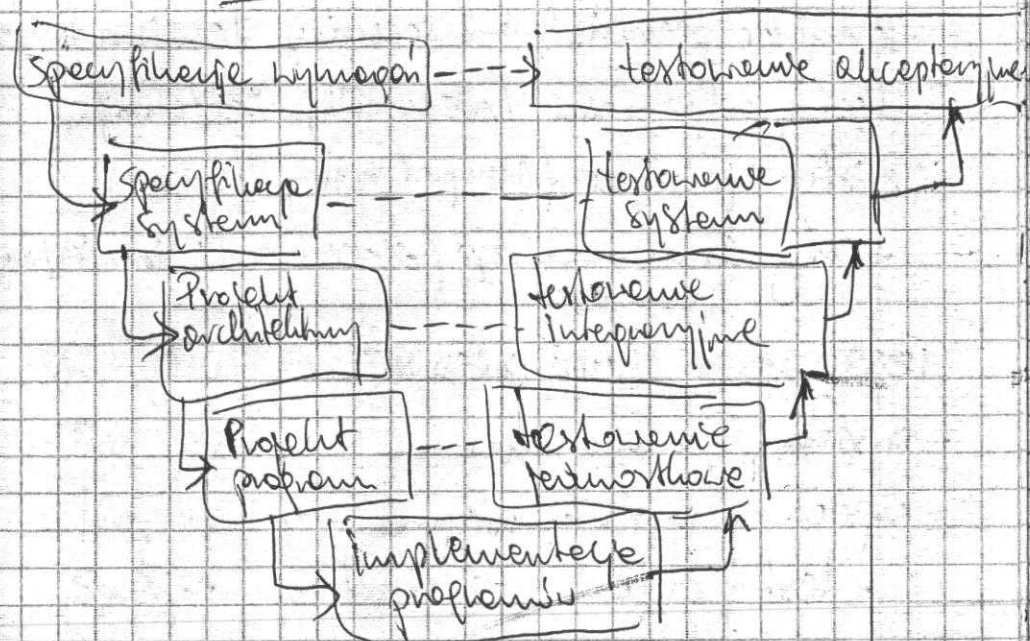 specyfikacja wymagań
testowanie akceptacyjne
specyfikacja
system
testowanie
system
Projekt
architektury
testowanie
integracyjne
Projekt
program
testowanie
jednostkowe
implementacja
programów